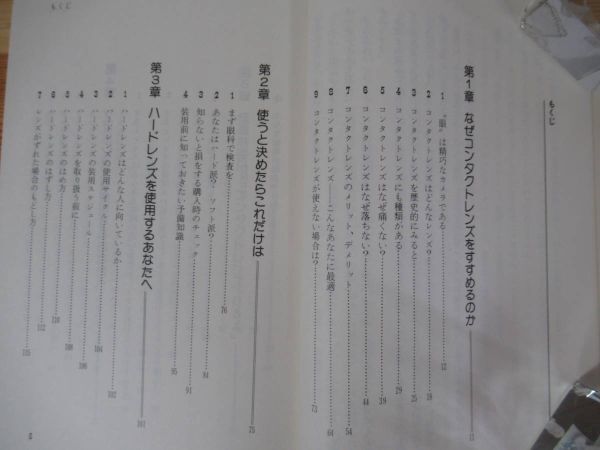 もくじ
もくじ
第1章 なぜコンタクトレンズをすすめるのか 11
1 “眼”は精巧なカメラである 12
2 コンタクトレンズはどんなレンズ? 18
3 コンタクトレンズを歴史的にみると 25
4 コンタクトレンズにも種類がある 29
5 コンタクトレンズはなぜ痛くない? 39
6 コンタクトレンズはなぜ落ちない? 44
7 コンタクトレンズのメリット、デメリット 54
8 コンタクトレンズ——こんなあなたに最適 64
9 コンタクトレンズが使えない場合は? 73
第2章 使うと決めたらこれだけは 75
1 まず眼科で検査を 76
2 あなたはハード派? ソフト派? 84
3 知らないと損をする購入時のチェック 91
4 装用前に知っておきたい予備知識 95
第3章 ハードレンズを使用するあなたへ 101
1 ハードレンズはどんな人に向いているか 102
2 ハードレンズの使用サイクル 104
3 ハードレンズの装用スケジュール 106
4 ハードレンズを取り扱う前に 108
5 ハードレンズのはめ方 110
6 ハードレンズのはずし方 112
7 レンズがずれた場合のもどし方 115